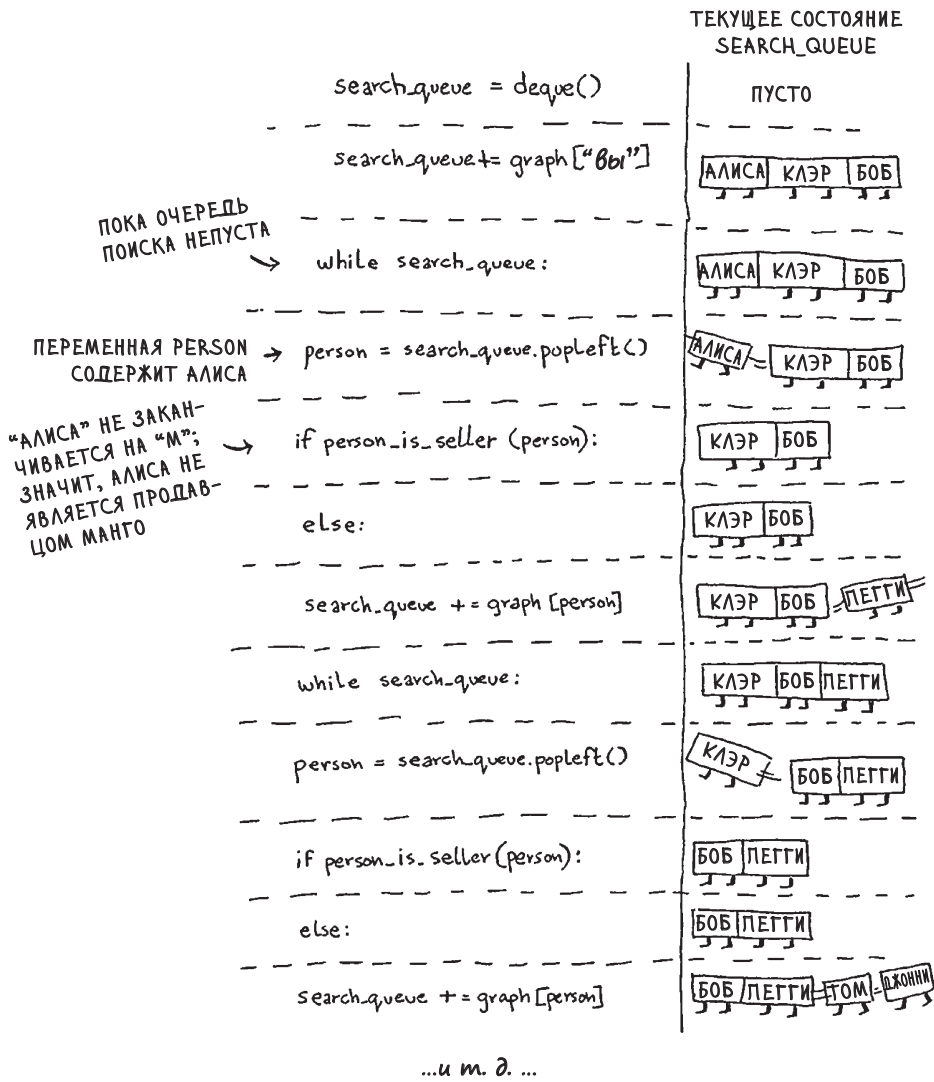 ТЕКУЩЕЕ СОСТОЯНИЕ
SEARCH_QUEUE
search_queue = deque()
ПУСТО
search_queue += graph["вы"]
АЛИСА КЛЭР БОБ
ПОКА ОЧЕРЕДЬ
ПОИСКА НЕПУСТА
while search_queue:
АЛИСА КЛЭР БОБ
ПЕРЕМЕННАЯ PERSON
СОДЕРЖИТ АЛИСА
person = search_queue.popleft()
АЛИСА КЛЭР БОБ
"АЛИСА" НЕ ЗАКАН-
ЧИВАЕТСЯ НА "М";
ЗНАЧИТ, АЛИСА НЕ
ЯВЛЯЕТСЯ ПРОДАВ-
ЦОМ МАНГО
if person_is_seller (person):
КЛЭР БОБ
else:
КЛЭР БОБ
search_queue += graph [person]
КЛЭР БОБ ПЕГГИ
while search_queue:
КЛЭР БОБ ПЕГГИ
person = search_queue.popleft()
КЛЭР БОБ ПЕГГИ
if person_is_seller(person):
БОБ ПЕГГИ
else:
БОБ ПЕГГИ
search_queue += graph[person]
БОБ ПЕГГИ ТОМ ДЖОННИ
...и т. д. ...